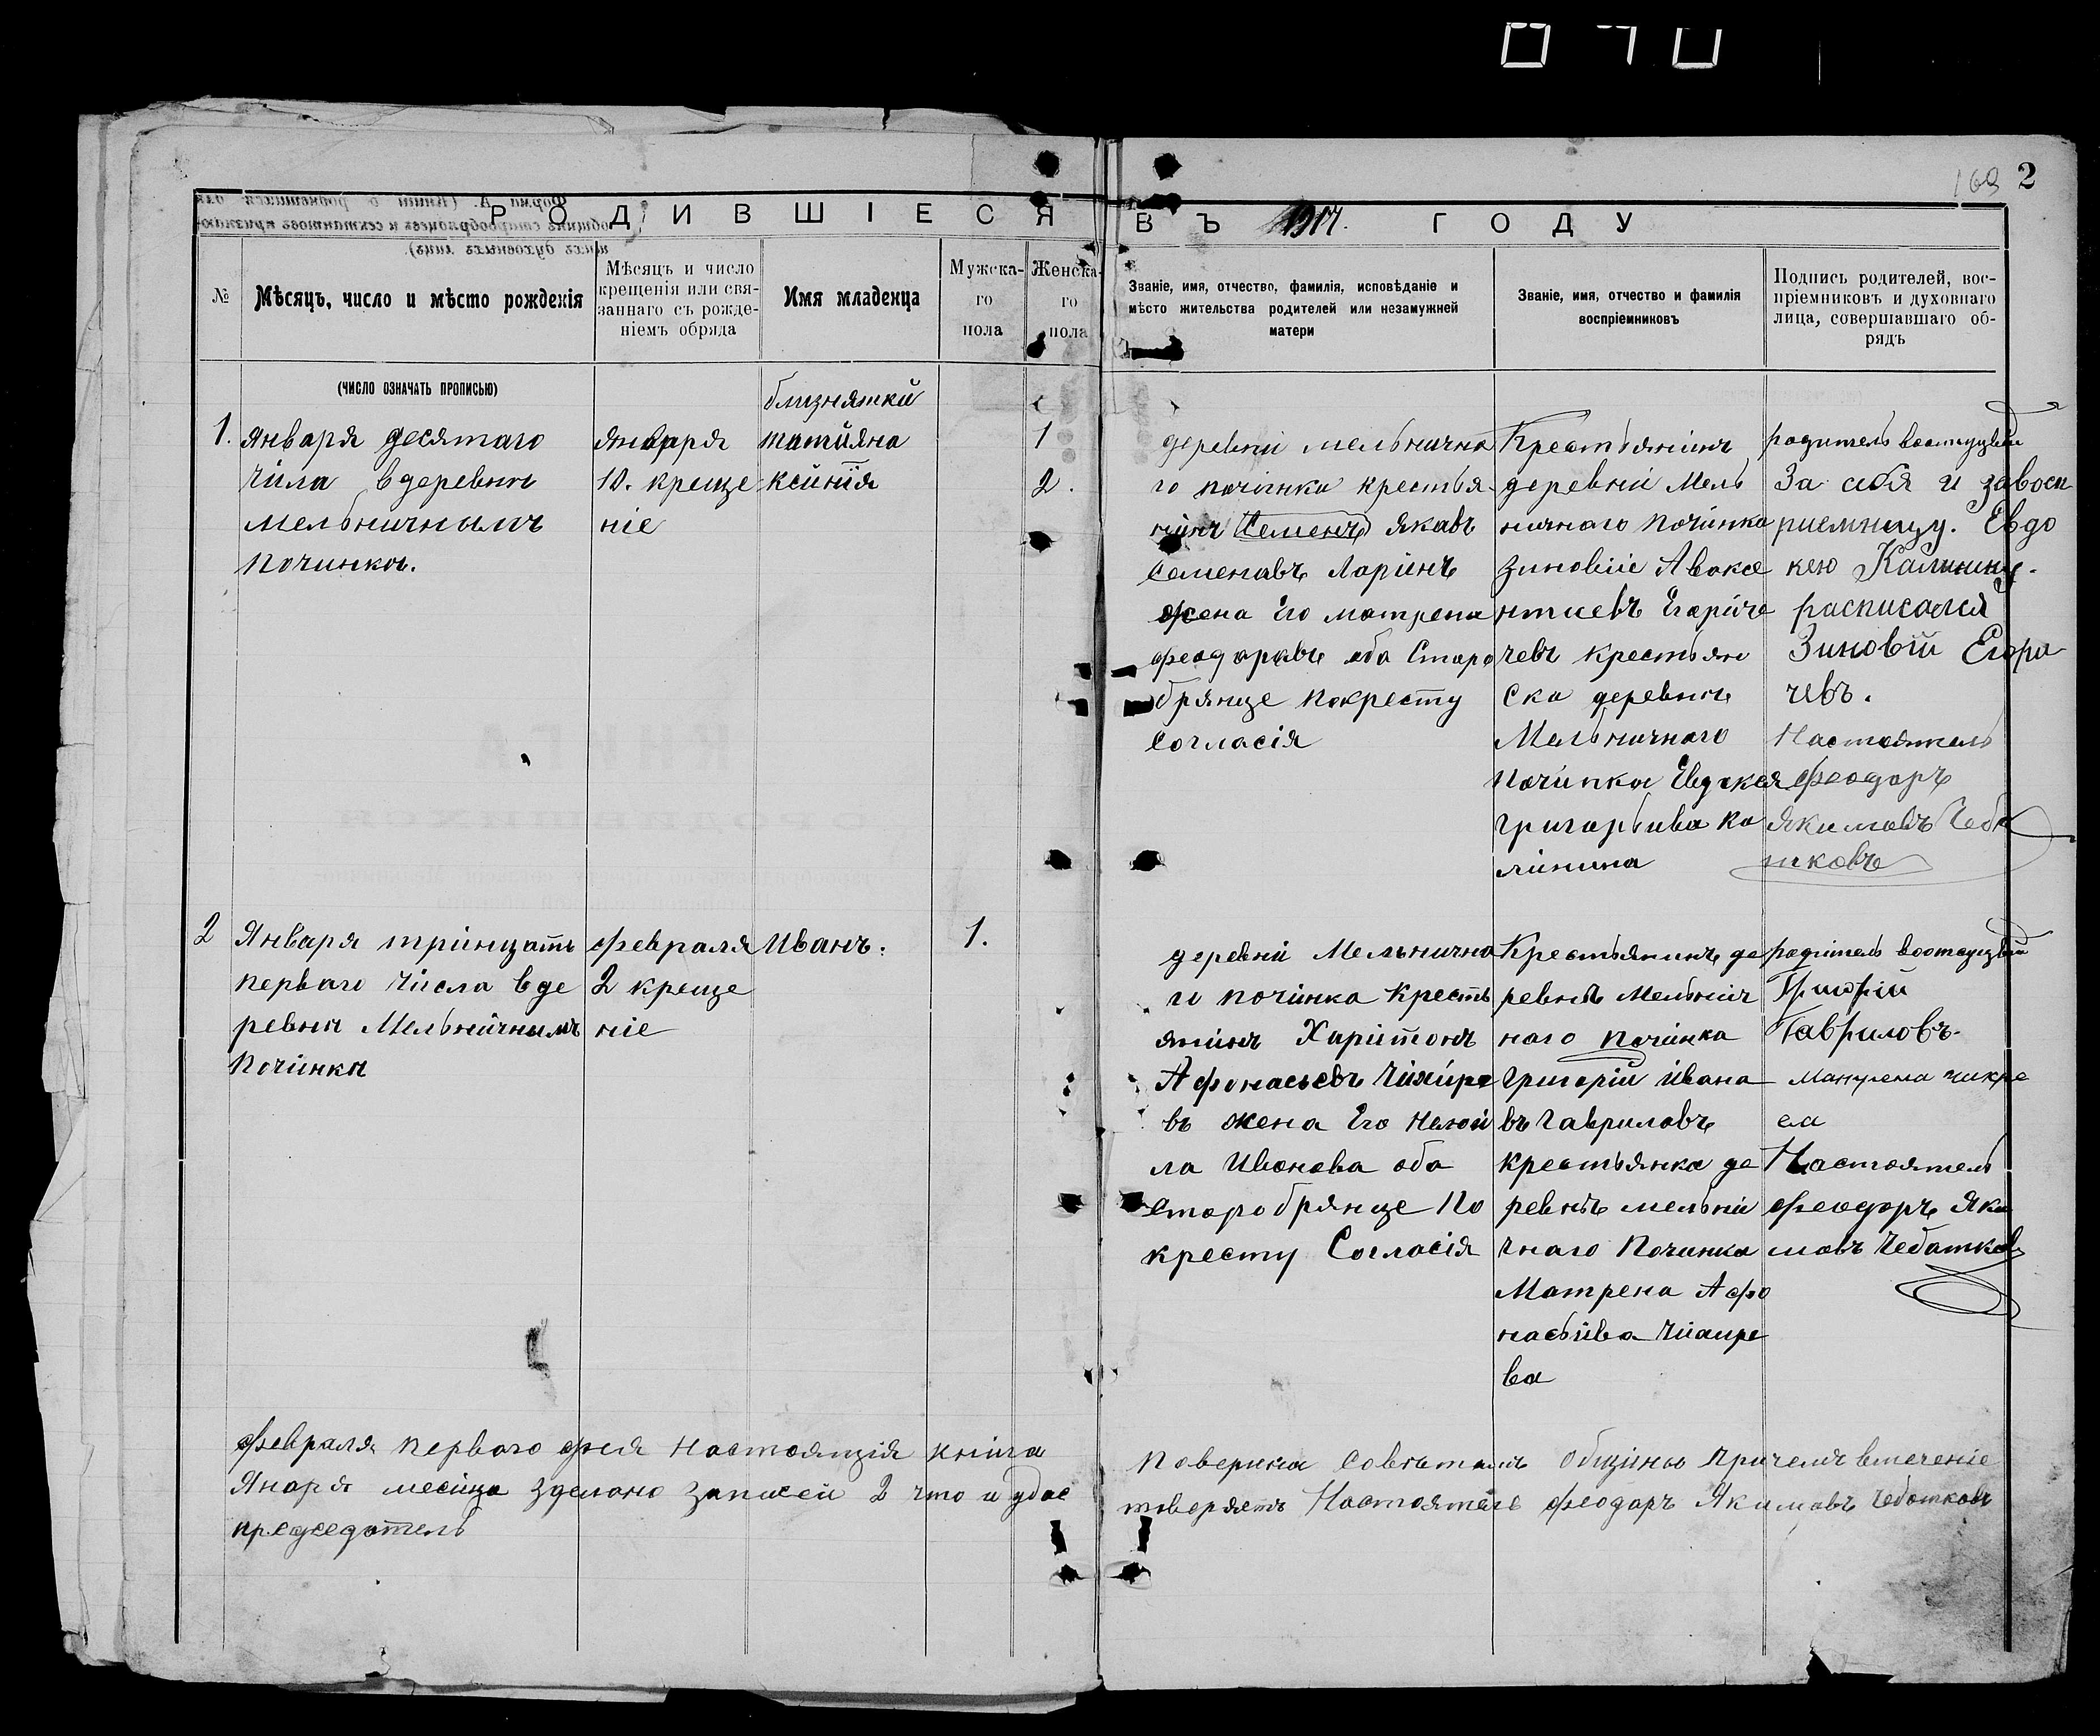 169 2
РОДИВШІЕСЯ ВЪ 1917. ГОДУ
№
Мѣсяцъ, число и мѣсто рожденія
Мѣсяцъ и число
крещенія или свя-
заннаго съ рожде-
ніемъ обряда
Имя младенца
Мужска-
го
пола
Женска-
го
пола
Званіе, имя, отчество, фамилія, исповѣданіе и
мѣсто жительства родителей или незамужней
матери
Званіе, имя, отчество и фамилія
воспріемниковъ
Подпись родителей, вос-
пріемниковъ и духовнаго
лица, совершавшаго об-
рядъ
(ЧИСЛО ОЗНАЧАТЬ ПРОПИСЬЮ)
1.
Января десятаго
числа вдеревнѣ
мельничнымъ
Починкѣ.
Января
10. креще
ніе
близняткй
татйяна
ксйнія
1
2.
деревнй мельнична
го починка крестья
нинъ Семенъ Якавъ
Семенавъ Ларинъ
жена Его матрена
феодаравъ оба Старо
брянце Покресту
Согласія
Крестьянинъ
деревнй Мель
ничнаго Починка
Зиновіе Авоксе
нтиевъ Егориче
чевъ крестьян
ска деревнѣ
Мельничнаго
Починка Евдакея
Григорьива Ка
линина
родитель воотсуцвіи
За себя и завосп
риемницу. Евдо
кею Калинину.
расписался
Зиновій Егора
чевъ.
Настоятель
феодаръ
Якимовъ Чеба
тковъ
2
Января трйнцать
перваго Числа вде
ревни Мельничнымъ
Починки
февраля
2 креще
ніе
Иванъ.
1.
деревнй Мельнична
го починка кресть
янинъ Харитонъ
Афонасьевъ Чихире
въ жена Его
ла Иванова оба
Старобрянце По
кресту Согласія
Крестьянинъ де
ревнѣ Мельнич
наго Починка
Григорій Ивана
въ Гавриловъ
крестьянка де
ревнѣ мельни
чнаго Починка
Матрена Афо
насьива
ва
родитель воотсуцвіи
Гавриловъ.
Настоятель
феодоръ Яки
мовъ Чебатковъ
февраля перваго дня Настоящія книга Поверина Советамъ Общины Причемъ втеченіе
Январа месяца зделано Записей 2 что и удос товеряетъ Настоятель феодаръ Якимавъ Чебатковъ
председатель